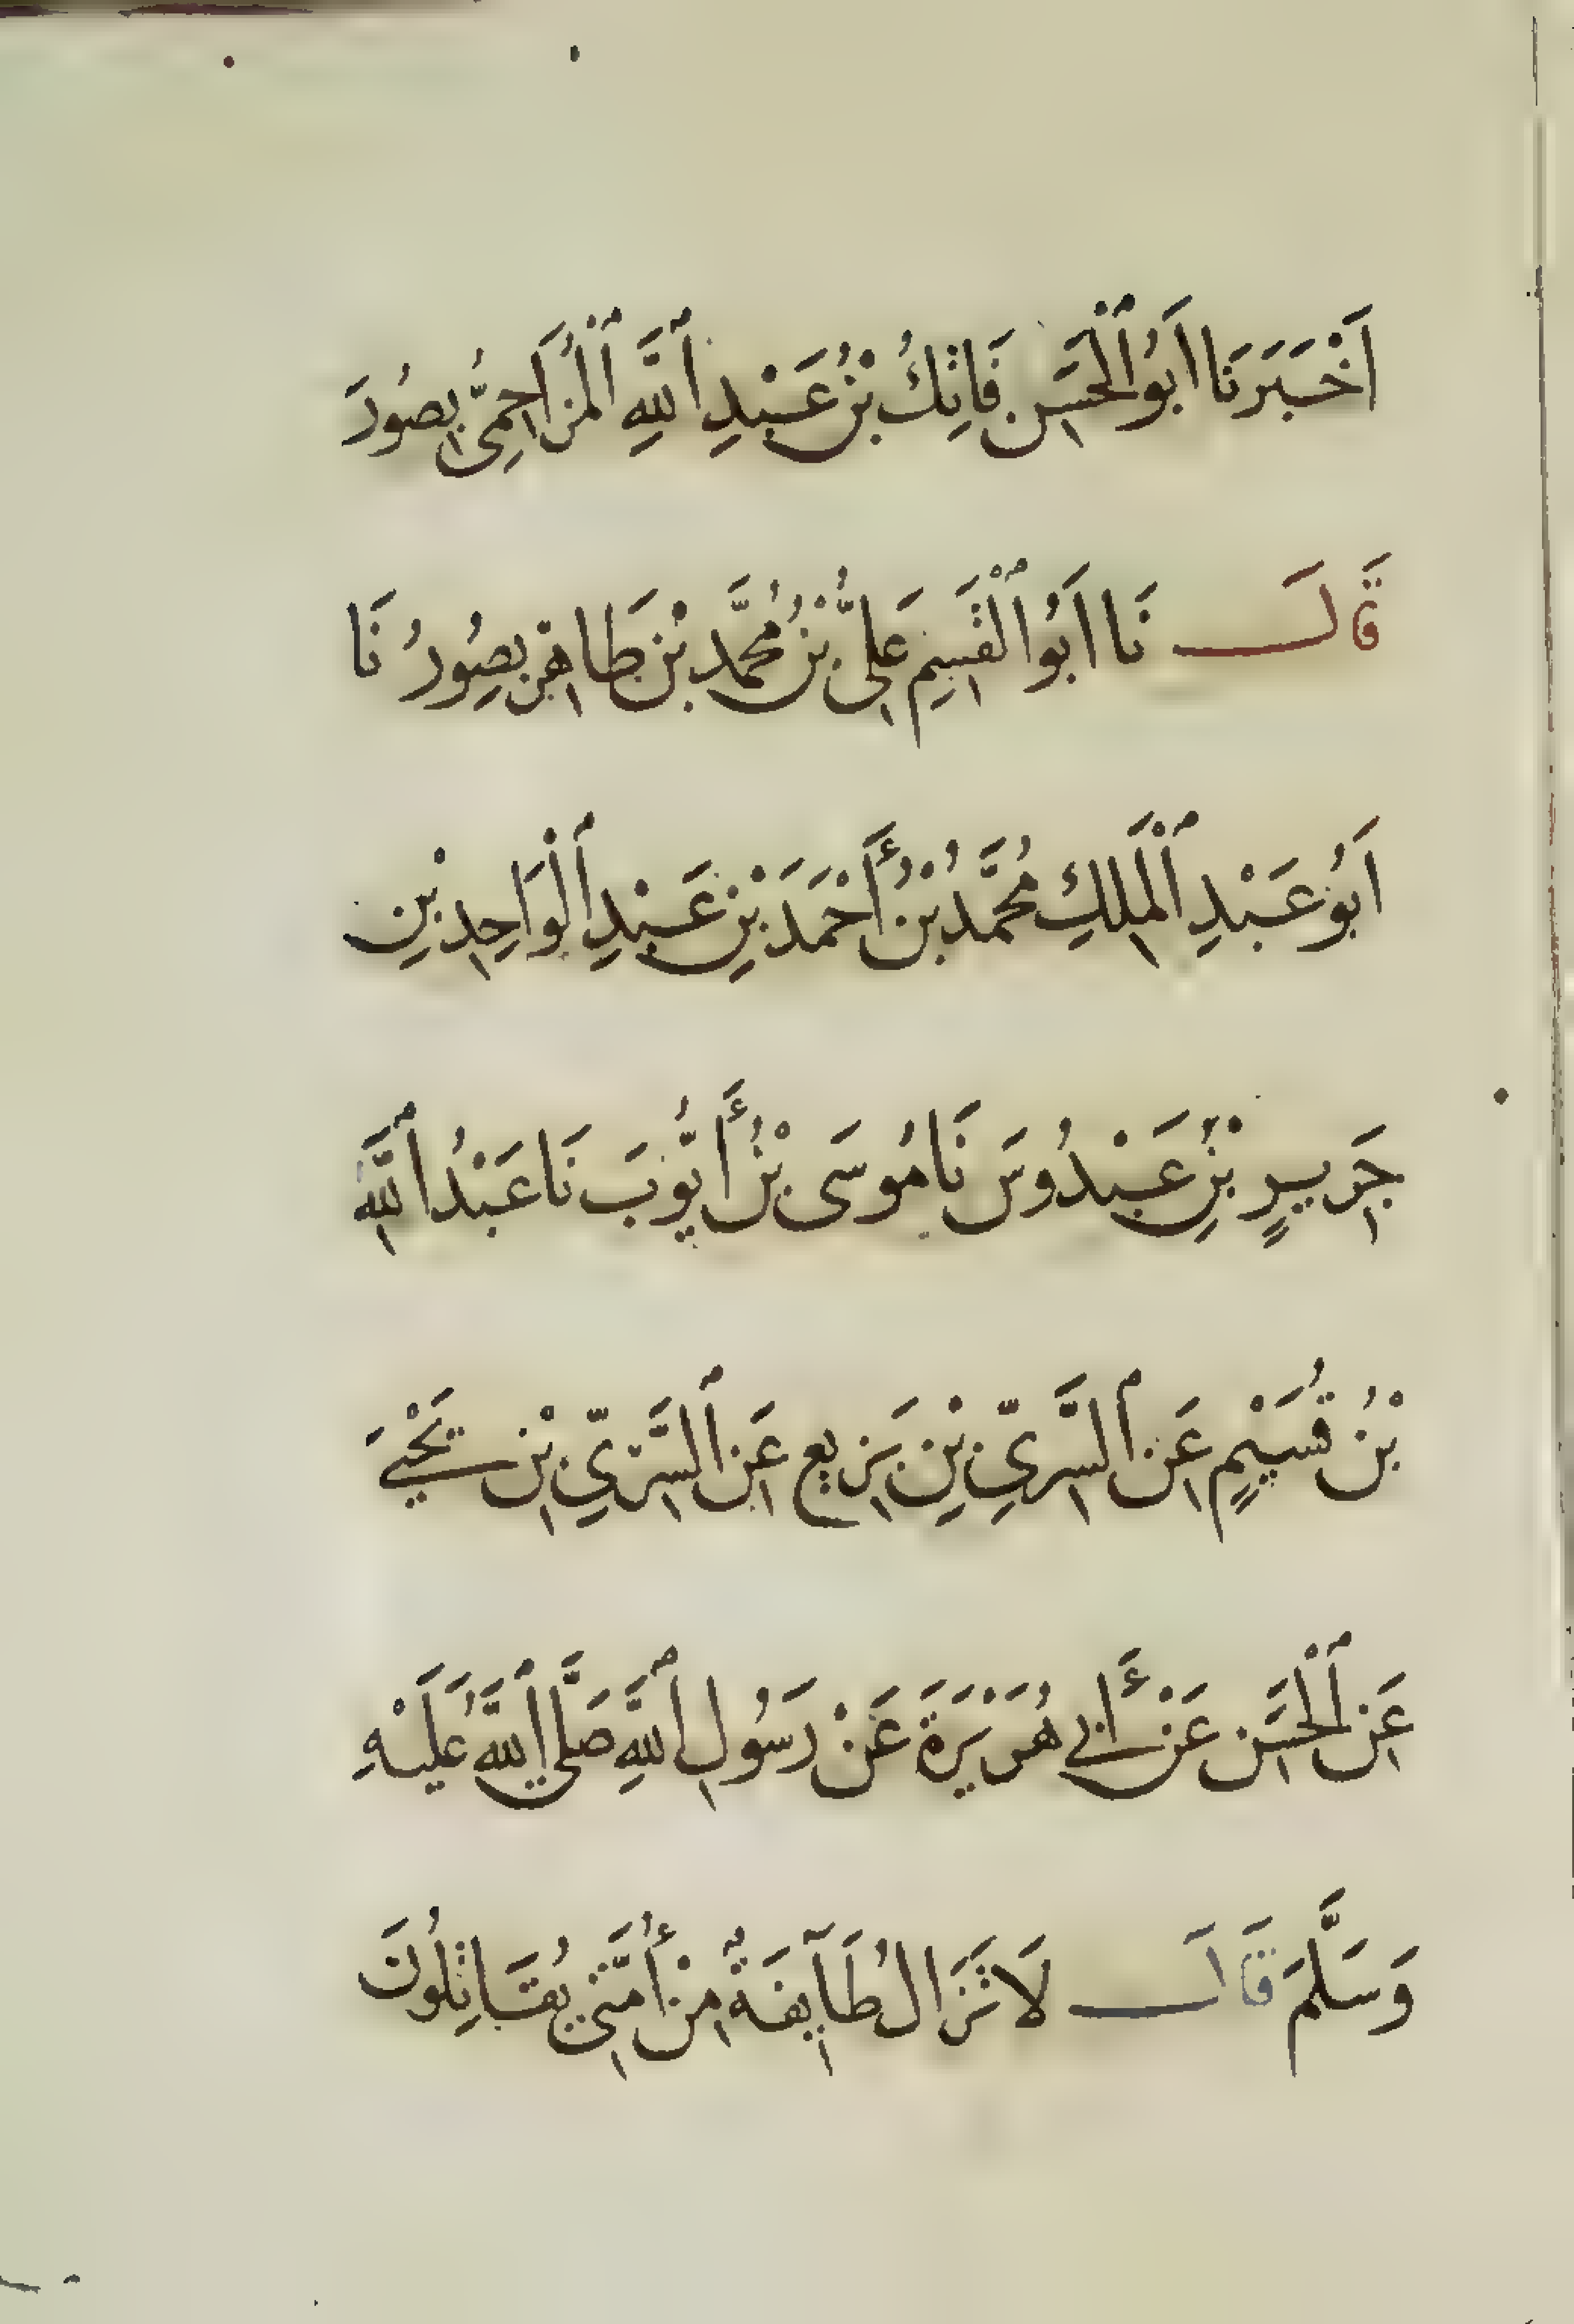 اَخْبَرَنَا اَبُو ٱلْحَسَنِ فَاتِكُ بْنُ عَبْدِ ٱللَّهِ ٱلْمُزَاحِمِيُّ بِصُورَ
قَالَ نَا اَبُو ٱلْقَسِمِ عَلِيُّ بْنُ مُحَمَّدِ بْنِ طَاهِرٍ بِصُورُ نَا
اَبُو عَبْدِ ٱلْمَلِكِ مُحَمَّدُ بْنُ أَحْمَدَ بْنِ عَبْدِ ٱلْوَاحِدِ بْنِ
جَرِيرٍ بْنِ عَبْدُوسَ نَا مُوسَى بْنُ أَيُّوبَ نَا عَبْدُ ٱللَّهِ
بْنُ قُسَيْمٍ عَنِ ٱلسَّرِيِّ بْنِ بَزِيعٍ عَنِ ٱلسَّرِيِّ بْنِ يَحْيَى
عَنِ ٱلْحَسَنِ عَنْ أَبِي هُرَيْرَةَ عَنْ رَسُولِ ٱللَّهِ صَلَّى ٱللَّهُ عَلَيْهِ
وَسَلَّمَ قَالَ لَا تَزَالُ طَآيِفَةٌ مِنْ أُمَّتِي يُقَاتِلُونَ